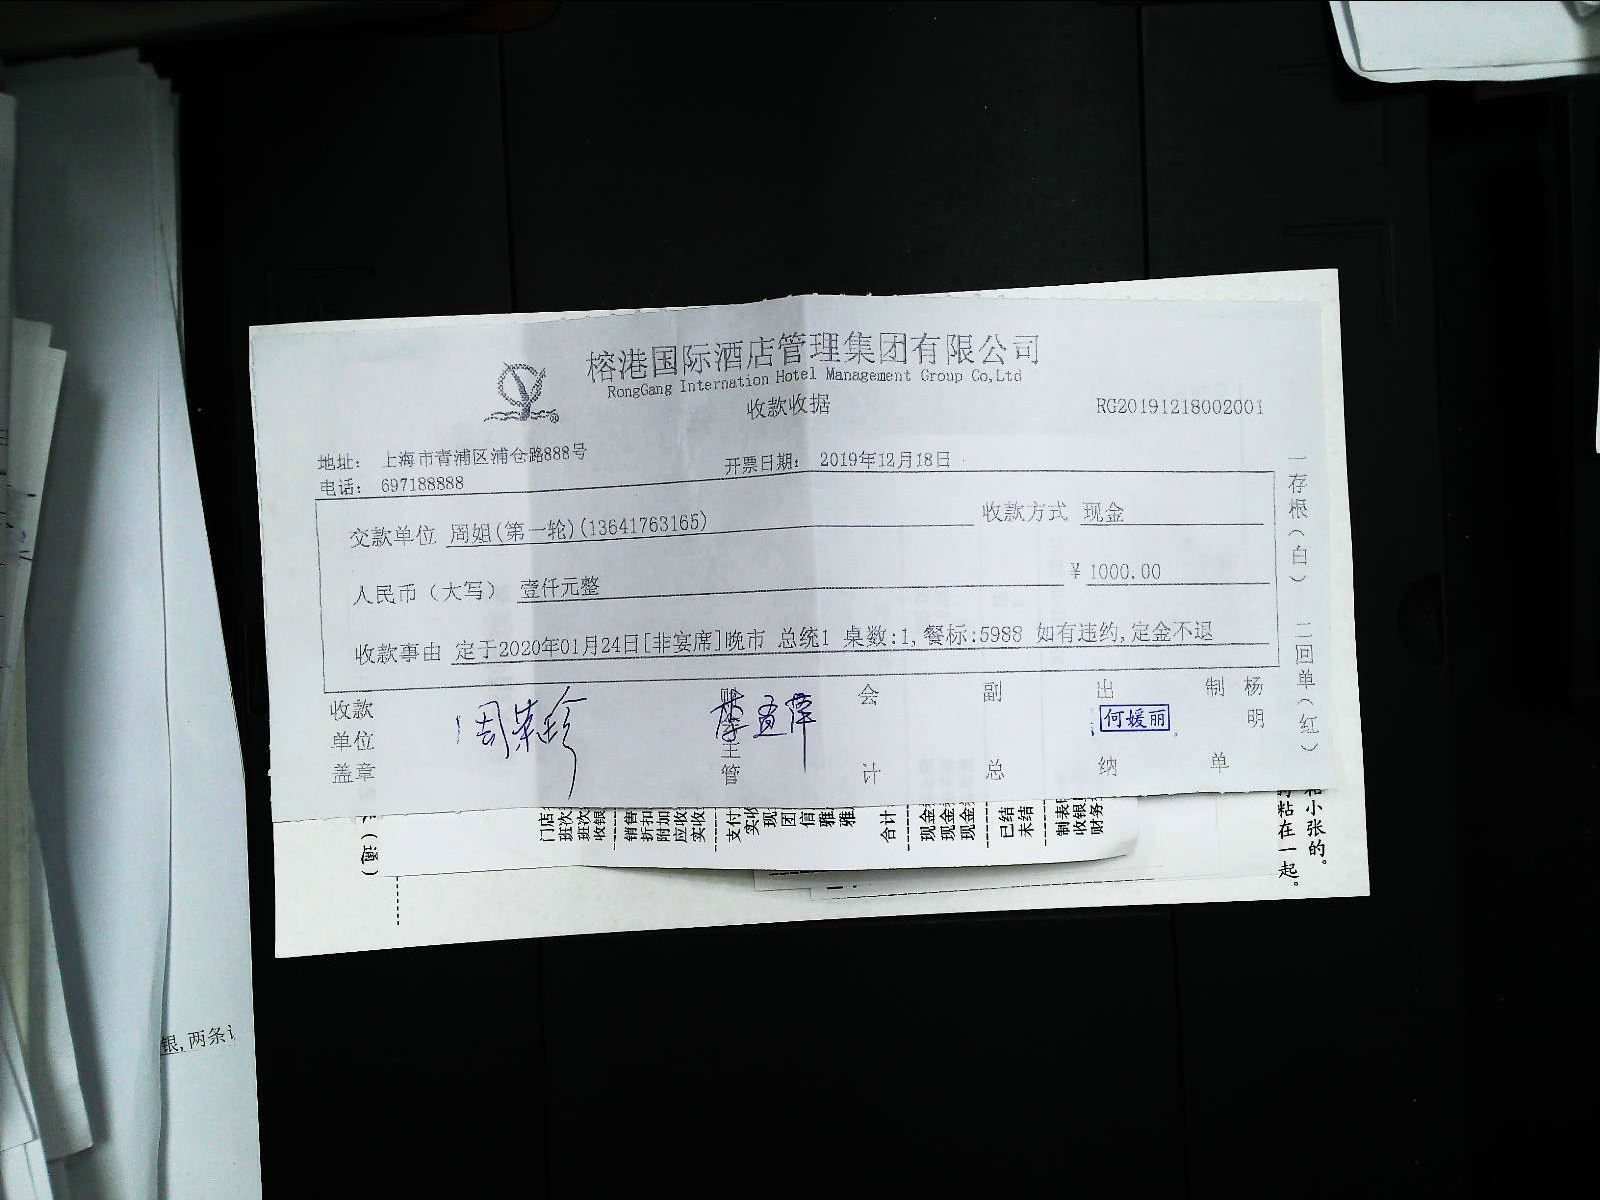 榕港国际酒店管理集团有限公司
RongGang Internation Hotel Management Group Co,Ltd
收款收据
RG20191218002001
地址： 上海市青浦区浦仓路888号
电话： 697188888
开票日期： 2019年12月18日
交款单位 周姐(第一轮)(13641763165)
收款方式 现金
人民币（大写） 壹仟元整
¥ 1000.00
收款事由 定于2020年01月24日[非宴席]晚市 总统1 桌数:1,餐标:5988 如有违约,定金不退
一存根（白） 二回单（红）
收款单位盖章
主管
会计
副总
出纳
何媛丽
制单
杨明
门店
班次
班次
收银
销售
折扣
附加
应收
实收
支付
实收
现
团
信
雅
雅
合计
现金
现金
现金
已结
未结
制表
收银
财务
和小张的。
粘在一起。
银,两条